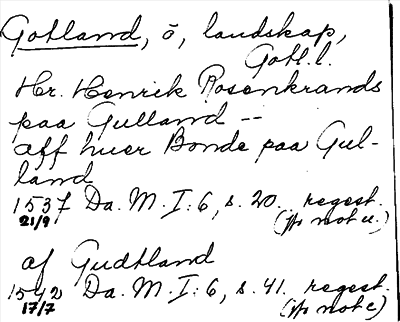 Gotland, ö, landskap,
Gotl. l.
Hr. Henrik Rosenkrands
paa Gulland --
aff huer Bonde paa Gul-
land
1537 Da. M. I:6, s. 20. regest.
21/9 not u.)
af Gudtland
1542 Da. M. I:6, s. 41. regest.
17/7 not c)